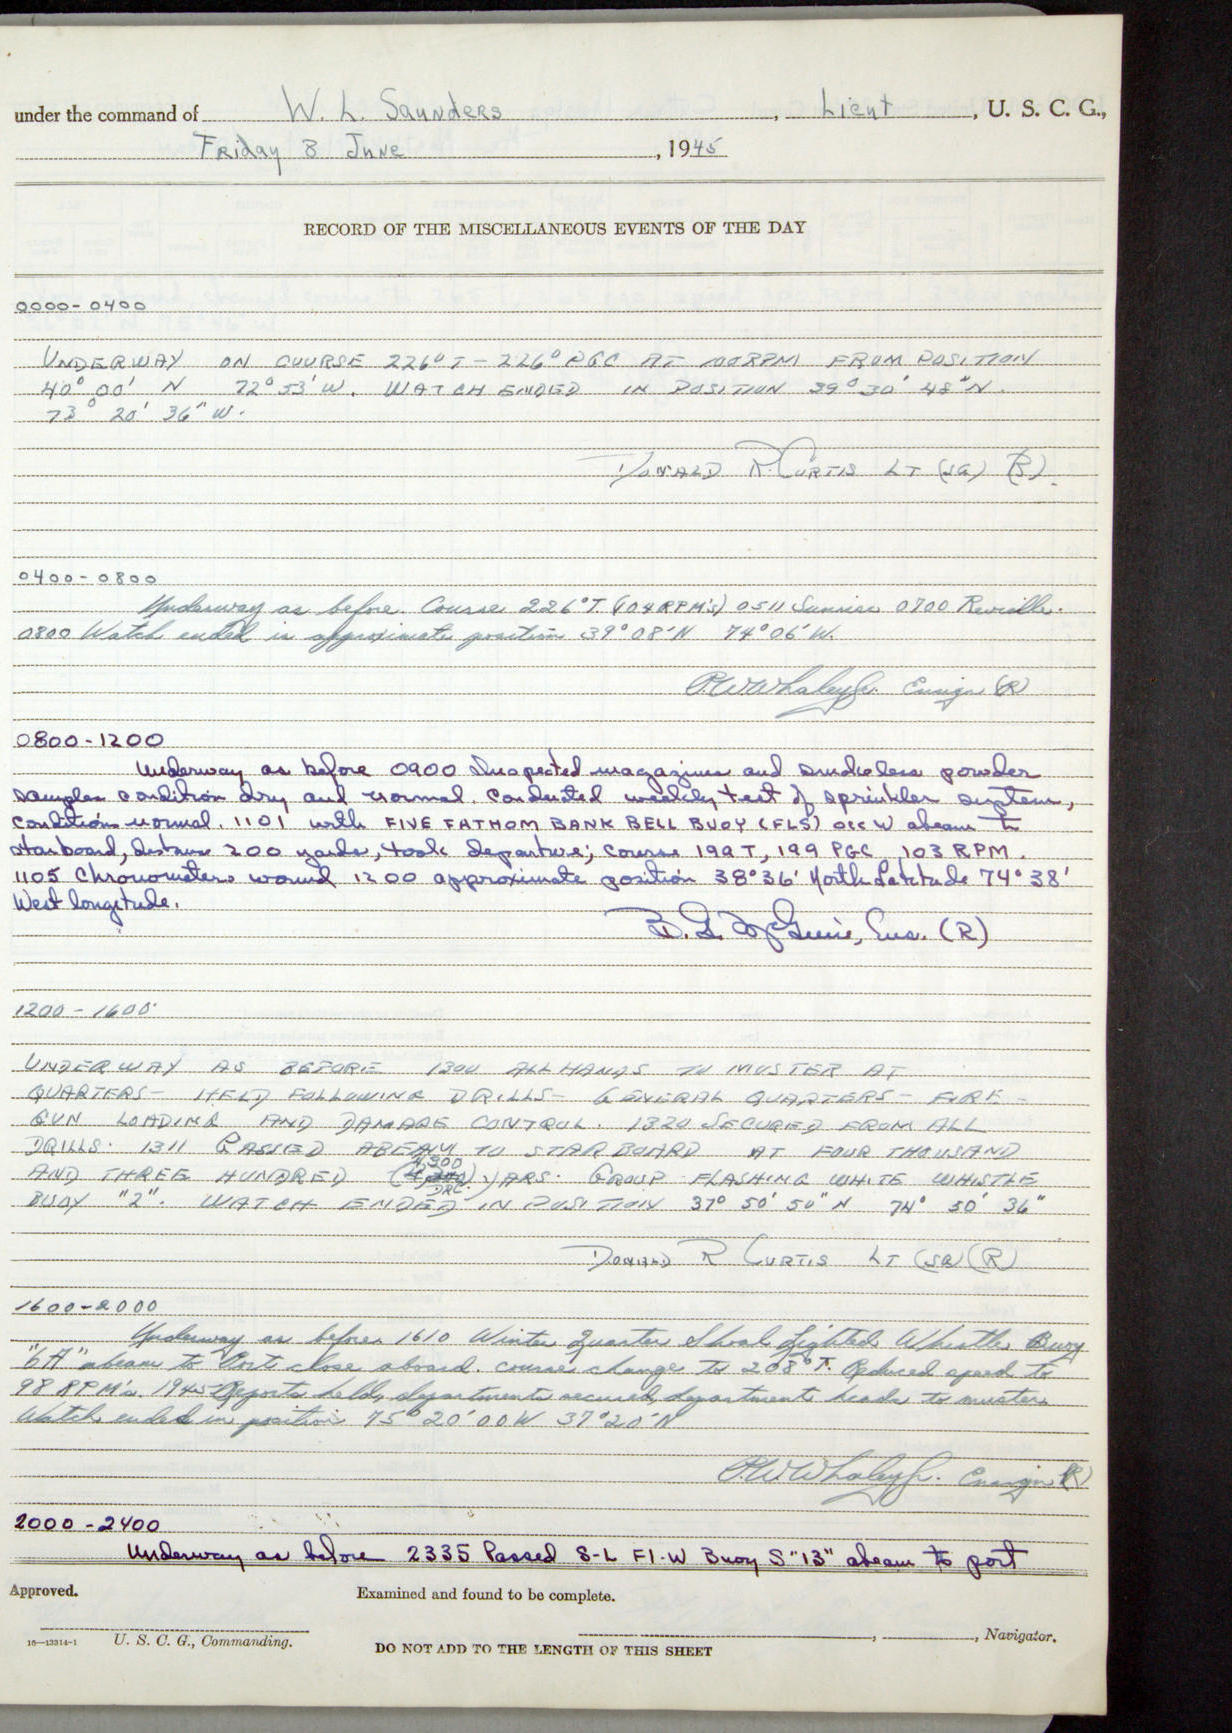 under the command of W. L. Saunders, Lieut, U. S. C. G.,
Friday 8 June, 1945
RECORD OF THE MISCELLANEOUS EVENTS OF THE DAY
0000-0400
UNDERWAY ON COURSE 226° T - 226° PGC AT 100 RPM FROM POSITION
40° 00' N 72° 53' W. WATCH ENDED IN POSITION 39° 30' 48" N.
73° 20' 36" W.
DONALD R. CURTIS LT (JG) (R).
0400-0800
Underway as before. Course 226° T. (104 RPM's) 0511 Sunrise 0700 Reveille.
0800 Watch ended in approximate position 39° 08' N 74° 06' W.
P.W. Whaley Jr. Ensign (R)
0800-1200
Underway as before 0900 Inspected magazines and smokeless powder
samples condition dry and normal. Conducted weekly test of sprinkler system,
condition normal. 1101 with FIVE FATHOM BANK BELL BUOY (FLS) occ W abeam to
starboard, distance 200 yards, took departure; course 199 T, 199 PGC 103 RPM.
1105 Chronometers wound 1200 approximate position 38° 36' North Latitude 74° 38'
West longitude.
B. G. McGuire, Ens. (R)
1200-1600
UNDERWAY AS BEFORE 1300 ALL HANDS TO MUSTER AT
QUARTERS- HELD FOLLOWING DRILLS- GENERAL QUARTERS- FIRE-
GUN LOADING AND DAMAGE CONTROL. 1320 SECURED FROM ALL
DRILLS. 1311 PASSED ABEAM TO STARBOARD AT FOUR THOUSAND
4,300
AND THREE HUNDRED () YARS. GROUP FLASHING WHITE WHISTLE
DRC
BUOY "2". WATCH ENDED IN POSITION 37° 50' 50" N 74° 50' 36"
DONALD R CURTIS LT (JG) (R)
1600-2000
Underway as before 1610 Winter Quarter Shoal Lighted Whistle Buoy
"6A" abeam to Port close aboard. course change to 208° T. Reduced speed to
98 RPM's. 1945 Reports held, departments secured, department heads to muster.
Watch ended in position 75° 20' 00 W 37° 20' N
P.W. Whaley Jr. Ensign (R)
2000-2400
Underway as before 2335 Passed S-L Fl-W Buoy S"13" abeam to port
Approved. Examined and found to be complete.
16—13314-1 U. S. C. G., Commanding. , , Navigator.
DO NOT ADD TO THE LENGTH OF THIS SHEET